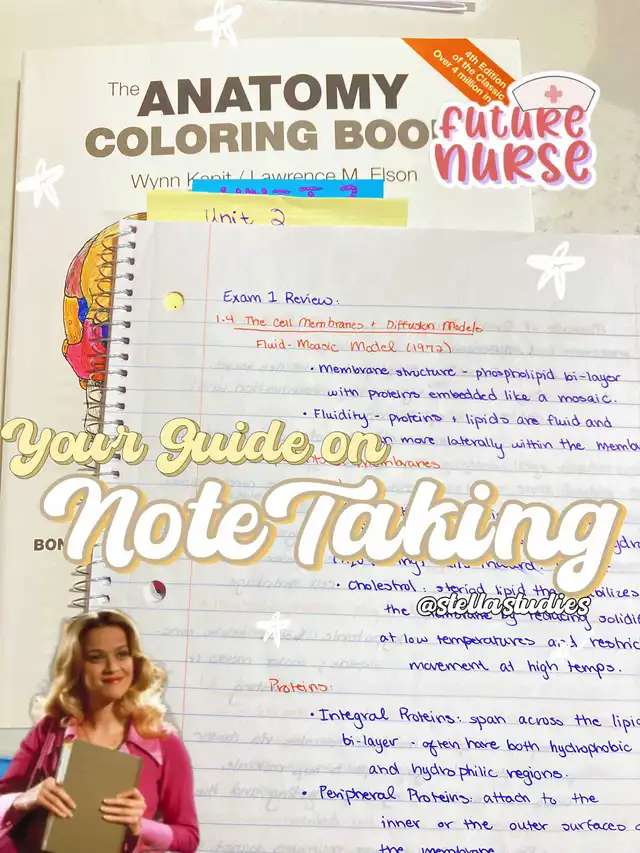 The ANATOMY
COLORING BOO
Wynn Kapit / Lawrence M. Elson
4th Edition
of the Classic
Over 4 million in
future
nurse
Unit 2
Exam 1 Review:
1.4 The Cell Membranes + Diffusion Models
Fluid-Moasic Model (1972)
• Membrane structure - phospholipid bi-layer
with proteins embedded like a mosaic.
• Fluidity - proteins + lipids are fluid and
more laterally within the memb
membranes
Your Guide on
Note Taking
BON
• Cholestrol: steriod lipid
@stellastudies
the membrane by reducing solidi
at low temperatures and restric
movement at high temps.
Proteins:
• Integral Proteins: span across the lipi
bi-layer - often have both hydrophobic
and hydrophilic regions.
• Peripheral Proteins: attach to the
inner or the outer surfaces
the membrane